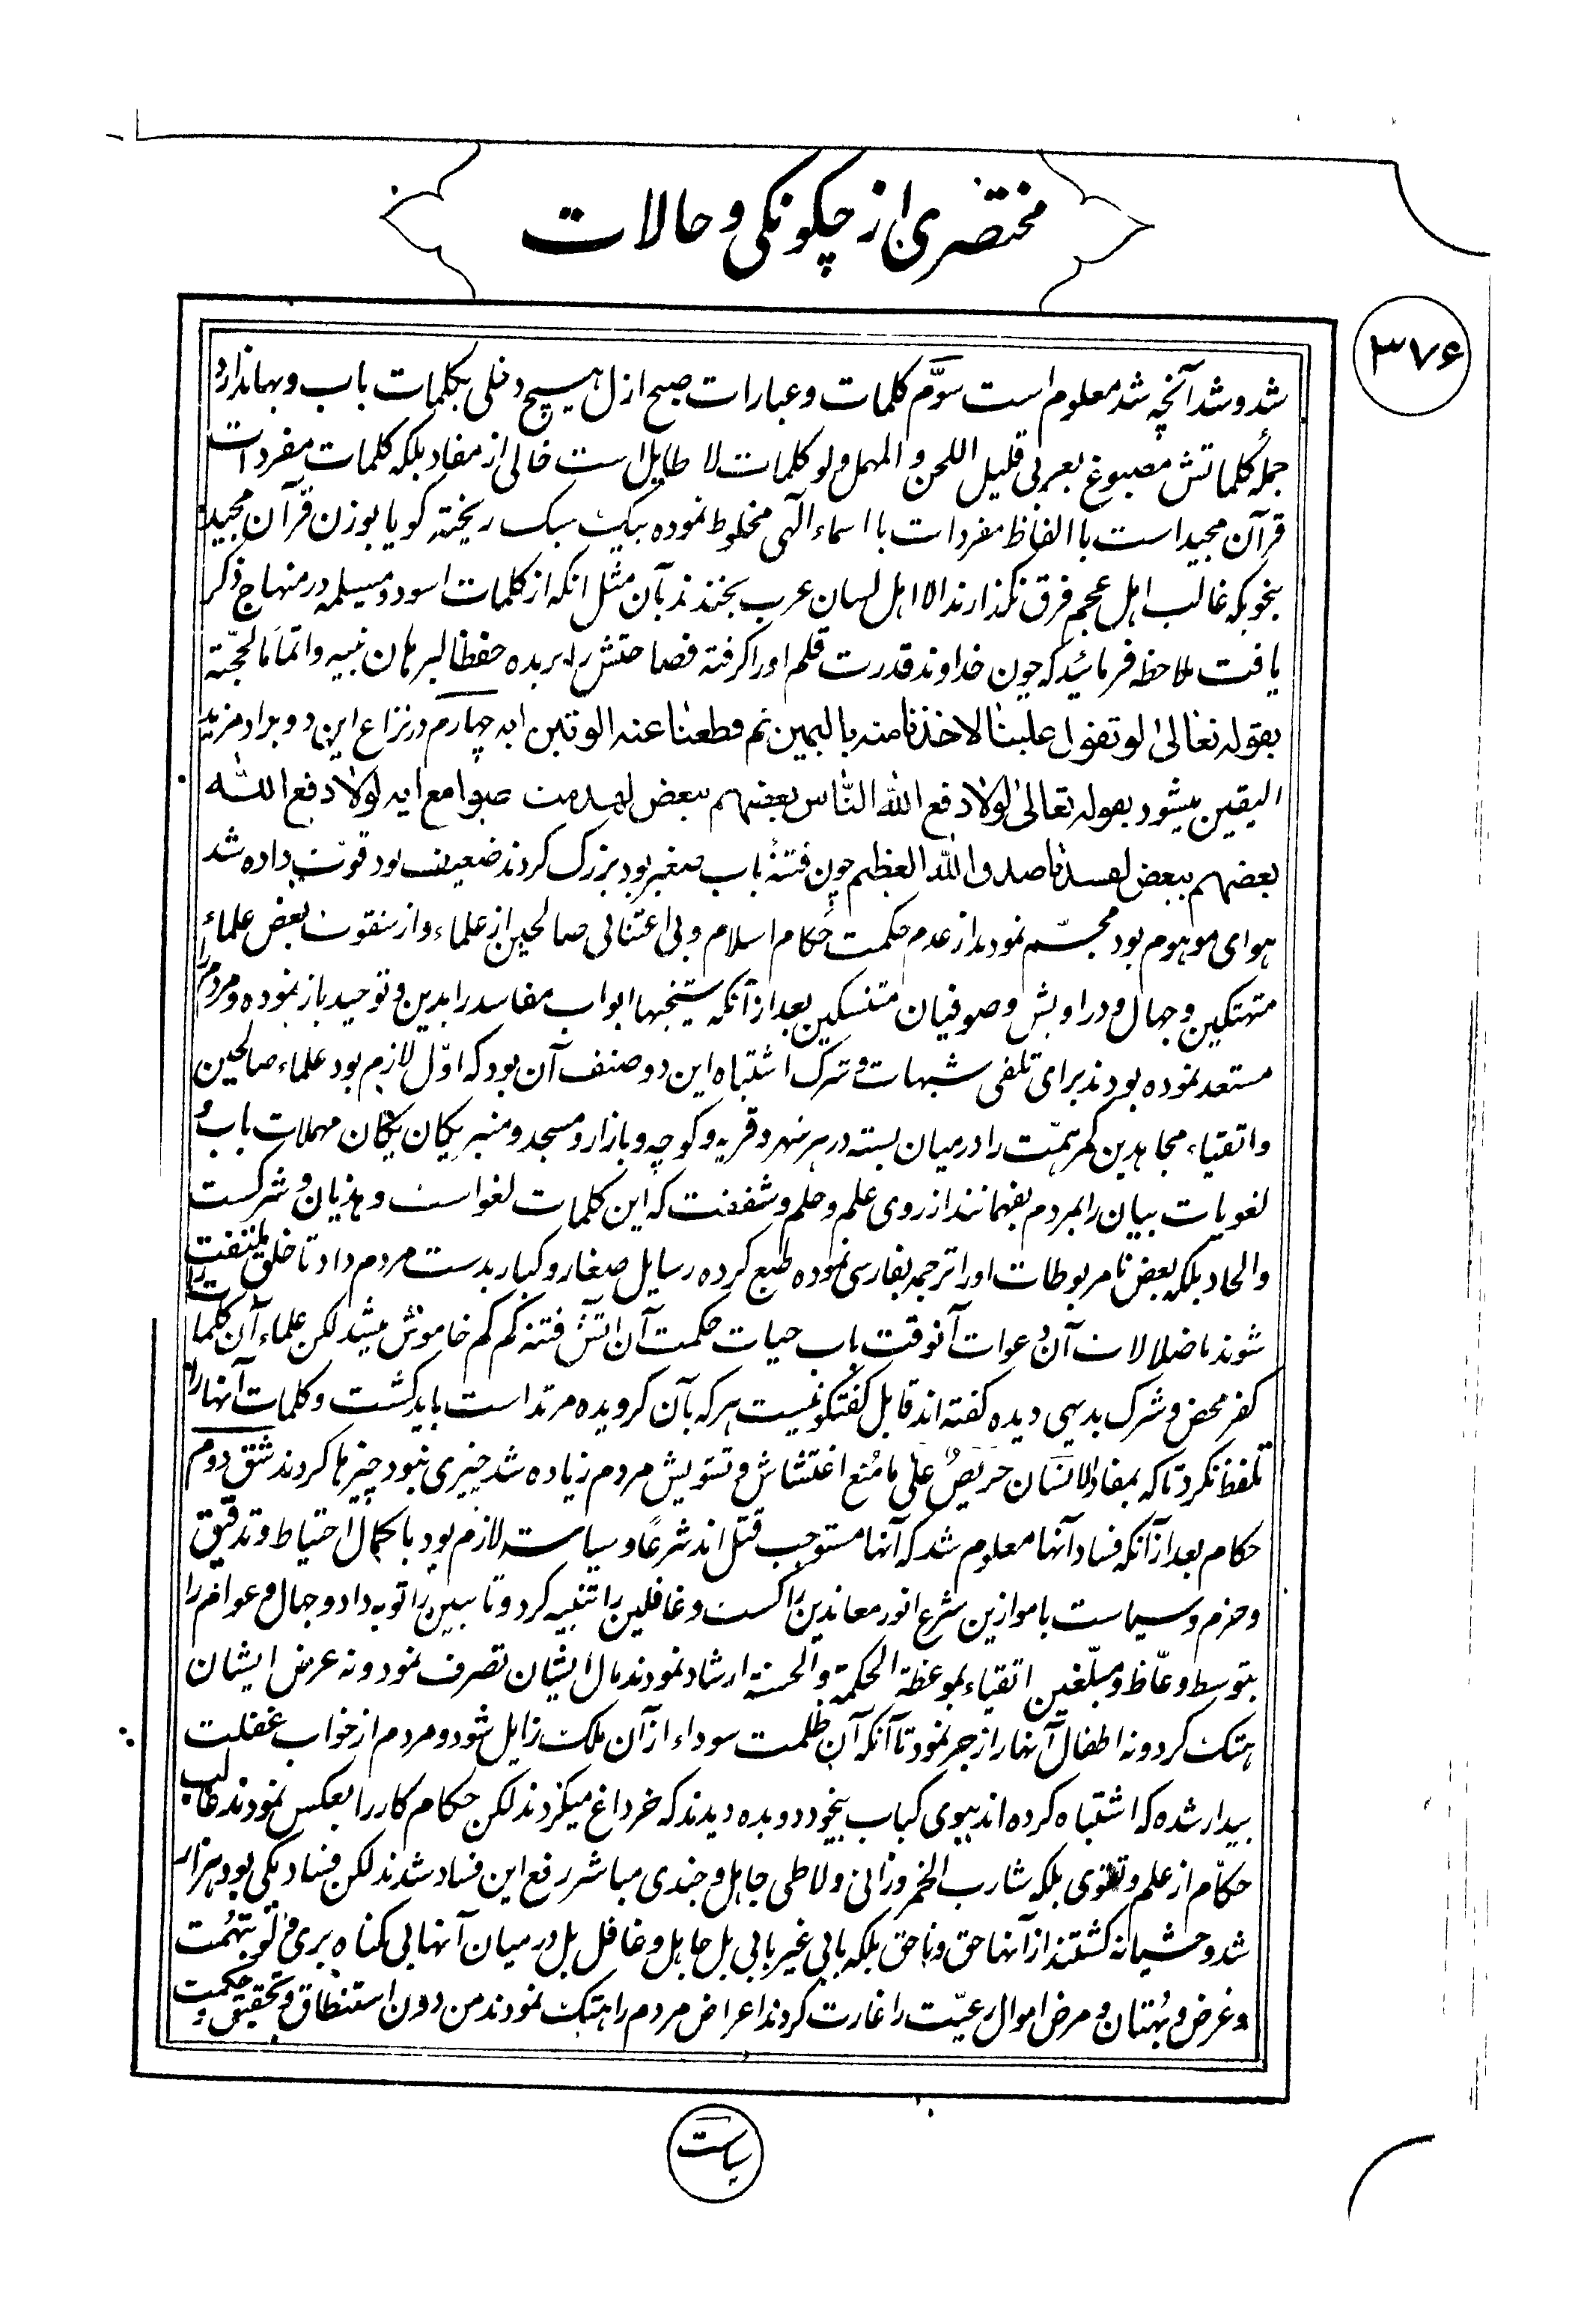 مختصری از چکونکی و حالات
۳۷۶
شد و شد آنچه شد معلوم است سوّم کلمات و عبارات صبح ازل هیچ دخلی بکلمات باب و بها ندارد
جمله کلماتش مصبوغ بعربی قلیل اللحن و المهمل ولو کلمات لا طایل است خالی از مفاد بلکه کلمات مفردات
قرآن مجید است با الفاظ مفردات با اسماء الّهی مخلوط نموده بیک سبک ریخته کویا بوزن قرآن مجید
بنحویکه غالب اهل عجم فرق نکذارند الا اهل لسان عرب بخندند بآن مثل انکه از کلمات اسود و مسیلمه در منهاج ذکر
یافت ملاحظه فرمائید که چون خداوند قدرت قلم او را کرفته فصاحتش را بریده حفظا لبرهان نبیه و اتماما لحجّته
بقوله تعالی لو تقول علینا لاخذنا منه بالیمین ثم قطعنا عنه الوتین ایه چهارم در نزاع این دو برادر مزید
الیقین میشود بقوله تعالی لولا دفع الله النّاس بعضهم ببعض لهدمت صوامع ایه لولا دفع الله
بعضهم ببعض لفسدنا صدق الله العظیم چون فتنهٔ باب صغیر بود بزرک کردند ضعیف بود قوّت داده شد
هوای موهوم بود مجسّم نمودند از عدم حکمت حُکام اسلام و بی اعتنائی صالحین از علماء و از سقوت بعض علماء
متهتکین و جهال و دراویش و صوفیان متنسکین بعد از آنکه شیخیها ابواب مفاسد را بدین و توحید باز نموده و مردم را
مستعد نموده بودند برای تلقی شبهات و ترک اشتباه این دو صنف آن بود که اوّل لازم بود علماء صالحین
و اتقیاء مجاهدین کمر همّت را در میان بسته در هر شهر و قریه و کوچه و بازار و مسجد و منبر یکان یکان مهملات باب و
لغویات بیان را بمردم بفهمانند از روی علم و حلم و شفقت که این کلمات لغو است و هذیان و شرکست
و الحاد بلکه بعض نامربوطات او را ترجمه بفارسی نموده طبع کرده رسایل صغار و کبار بدست مردم داد تا خلق ملتفت
شوند با ضلالات آن دعوات آنوقت باب حیات حکمت آن اتش فتنه کم کم خاموش میشد لکن علماء آن کلمات را
کفر محض و شرک بدیهی دیده کفته اند قابل کفتکو نیست هر که بآن کرویده مرتد است باید کشت و کلمات آنها را
تلفظ نکرد تا که بمفاد الانسان حَریصٌ علی ما مُنِع اغتشاش و تشویش مردم زیاده شد چیزی نبود چیزها کردند شق دوم
حکام بعد از آنکه فساد آنها معلوم شد که آنها مستوجب قتل اند شرعًا و سیاستً لازم بود با کمال احتیاط و تدقیق
و حزم و سیاست با موازین شرع انور معاندین را کشت و غافلین را تنبیه کرد و تا‌ٔبین را توبه داد و جهال و عوام را
بتوسط و عّاظ و مبلّغین اتقیاء بموعظة الحکمة و الحسنه ارشاد نمودند مال ایشان تصرف نمود و نه عرض ایشان
هتک کرد و نه اطفال آنها را زجر نمود تا آنکه آن ظلمت سوداء از آن ملک زایل شود و مردم از خواب غفلت
بیدار شده که اشتباه کرده اند ببوی کباب بیخود دویده دیدند که خر داغ میکردند لکن حکام کار را بعکس نمودند غالب
حکّام از علم و تقوی بلکه شارب الخمر و زانی و لاطی جاهل و جندی مباشر رفع این فساد شدند لکن فساد یکی بود هزار
شد وحشیانه کشتند از آنها حق و ناحق بلکه بابی غیر بابی بل جاهل و غافل بل در میان آنها بی کناه بری ولو بتهُمت
و غرض و بُهتان و مرض اموال رعیّت را غارت کردند اعراض مردم را هتک نمودند من دون استنطاق و تحقیق و حکمت
سیاست